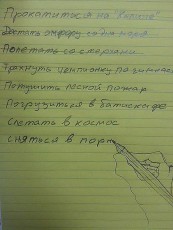 Прокатиться на "Кольке"
Достать амфору со дна моря
Полетать со стерхами
Трахнуть чемпионку по гимнаст
Потушить лесной пожар
Погрузиться в батискафе
Слетать в космос
Сняться в порн